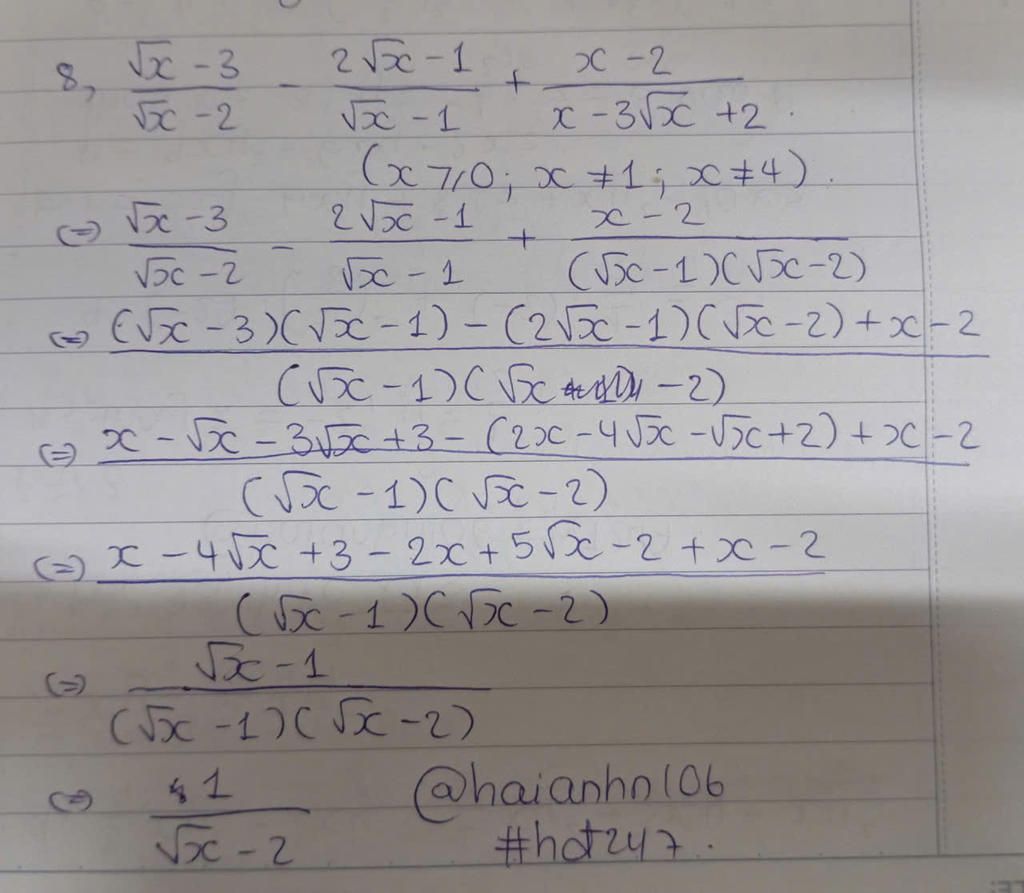 8, (√x - 3)/(√x - 2) - (2√x - 1)/(√x - 1) + (x - 2)/(x - 3√x + 2).
(x ⩾ 0; x ≠ 1; x ≠ 4).
(=) (√x - 3)/(√x - 2) - (2√x - 1)/(√x - 1) + (x - 2)/((√x - 1)(√x - 2))
(=) ((√x - 3)(√x - 1) - (2√x - 1)(√x - 2) + x - 2)/((√x - 1)(√x - 2))
(=) (x - √x - 3√x + 3 - (2x - 4√x - √x + 2) + x - 2)/((√x - 1)(√x - 2))
(=) (x - 4√x + 3 - 2x + 5√x - 2 + x - 2)/((√x - 1)(√x - 2))
(=) (√x - 1)/((√x - 1)(√x - 2))
(=) 1/(√x - 2)
@haianhn106
#hot247.